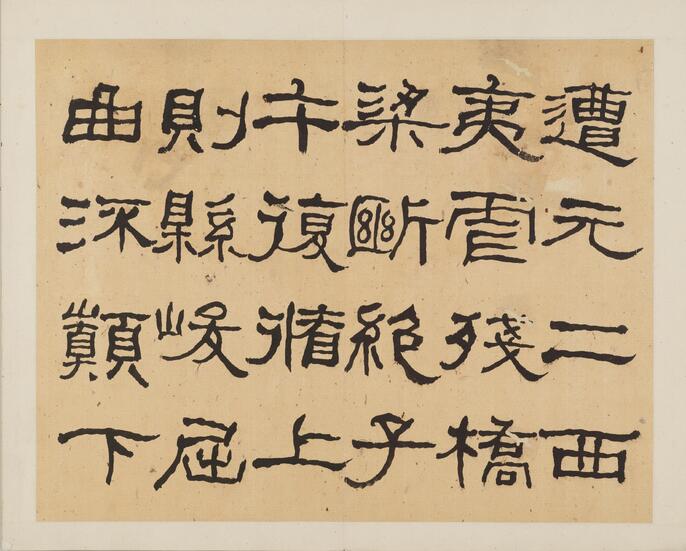 遭元二西
夷虐殘橋
梁斷絕子
午復循上
則縣峻屈
曲流巔下